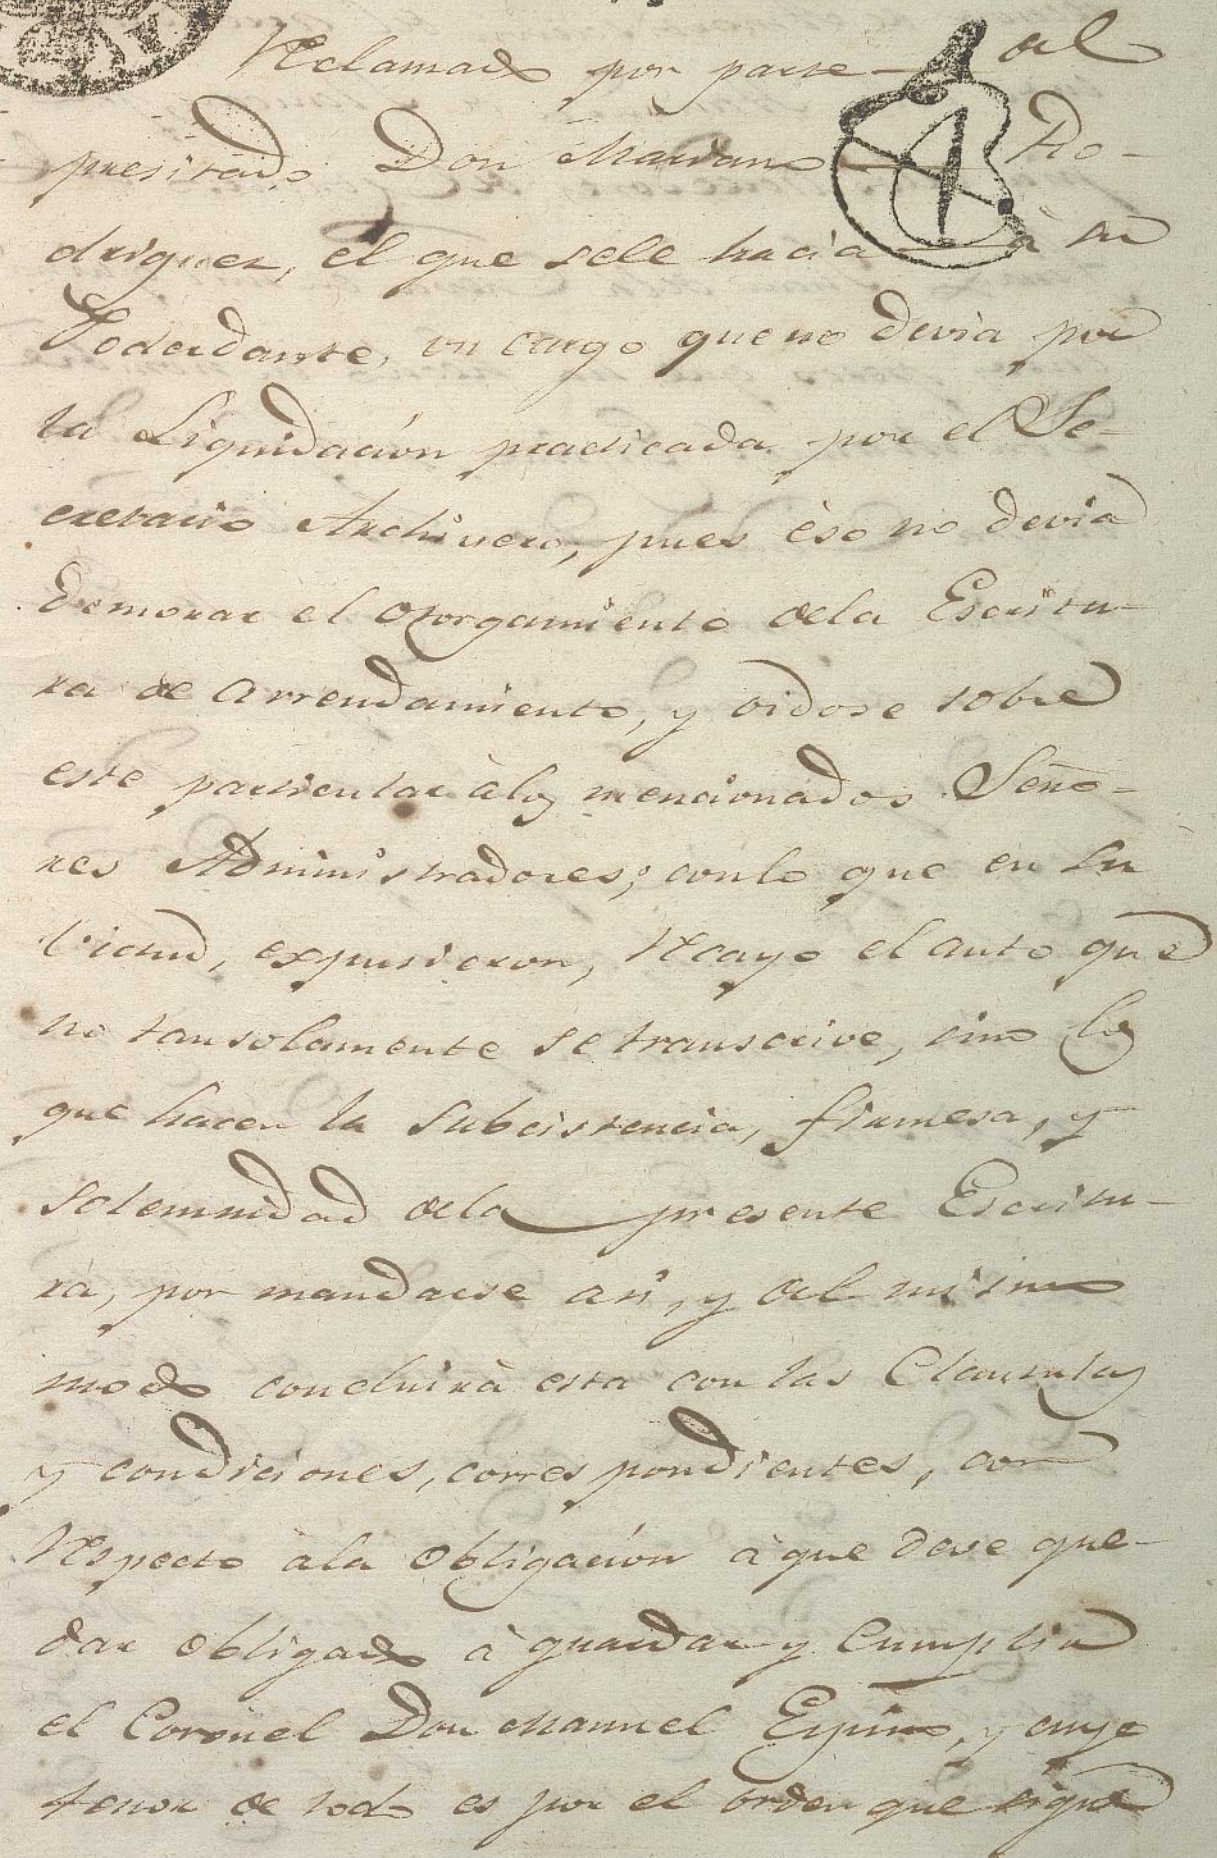 Reclamado por parte del
presitado Don Mariano Ro-
driguez, el que sele hacia à su
Poderdante, un cargo que no devia por
la Liquidación practicada por el Se-
cretario Archivero, pues èso no devia
demorar el otorgamiento dela Escritu-
ra de Arrendamiento, y oidose sobre
este particular àlos mencionados Seño-
res Administradores; conlo que en su
virtud, expusieron, Recayo el auto que
no tansolamente se transcrive, sino los
que hacen la Subcistencia, firmesa, y
solemnidad dela presente Escritu-
rà, por mandarse asi, y del mismo
modo concluirà esta con las Clausulas
y condiciones, correspondientes, con
Respecto àla obligación à que deve que-
dar obligado à guardar y Cumplir
el Coronel Don Manuel Espino, y cuyo
tenor de todo es por el orden que sigue